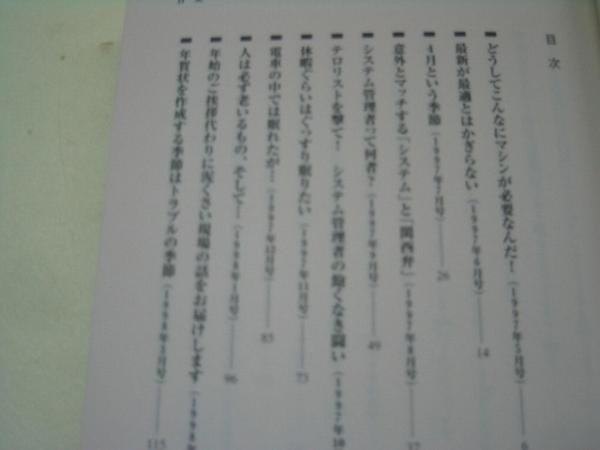 目次
■どうしてこんなにマシンが必要なんだ!(1997年5月号)――6
■最新が最適とはかぎらない(1997年6月号)――14
■4月という季節(1997年7月号)――26
■意外とマッチする「システム」と「関西弁」(1997年8月号)――37
■システム管理者って何者?(1997年9月号)――49
■テロリストを撃て! システム管理者の飽くなき闘い(1997年10
■休暇ぐらいはぐっすり眠りたい(1997年11月号)――73
■電車の中では眠れたが…(1997年12月号)――85
■人は必ず老いるもの、そして…(1998年1月号)――96
■年始のご挨拶代わりに泥くさい現場の話をお届けします(1998年
■年賀状を作成する季節はトラブルの季節(1998年3月号)――115